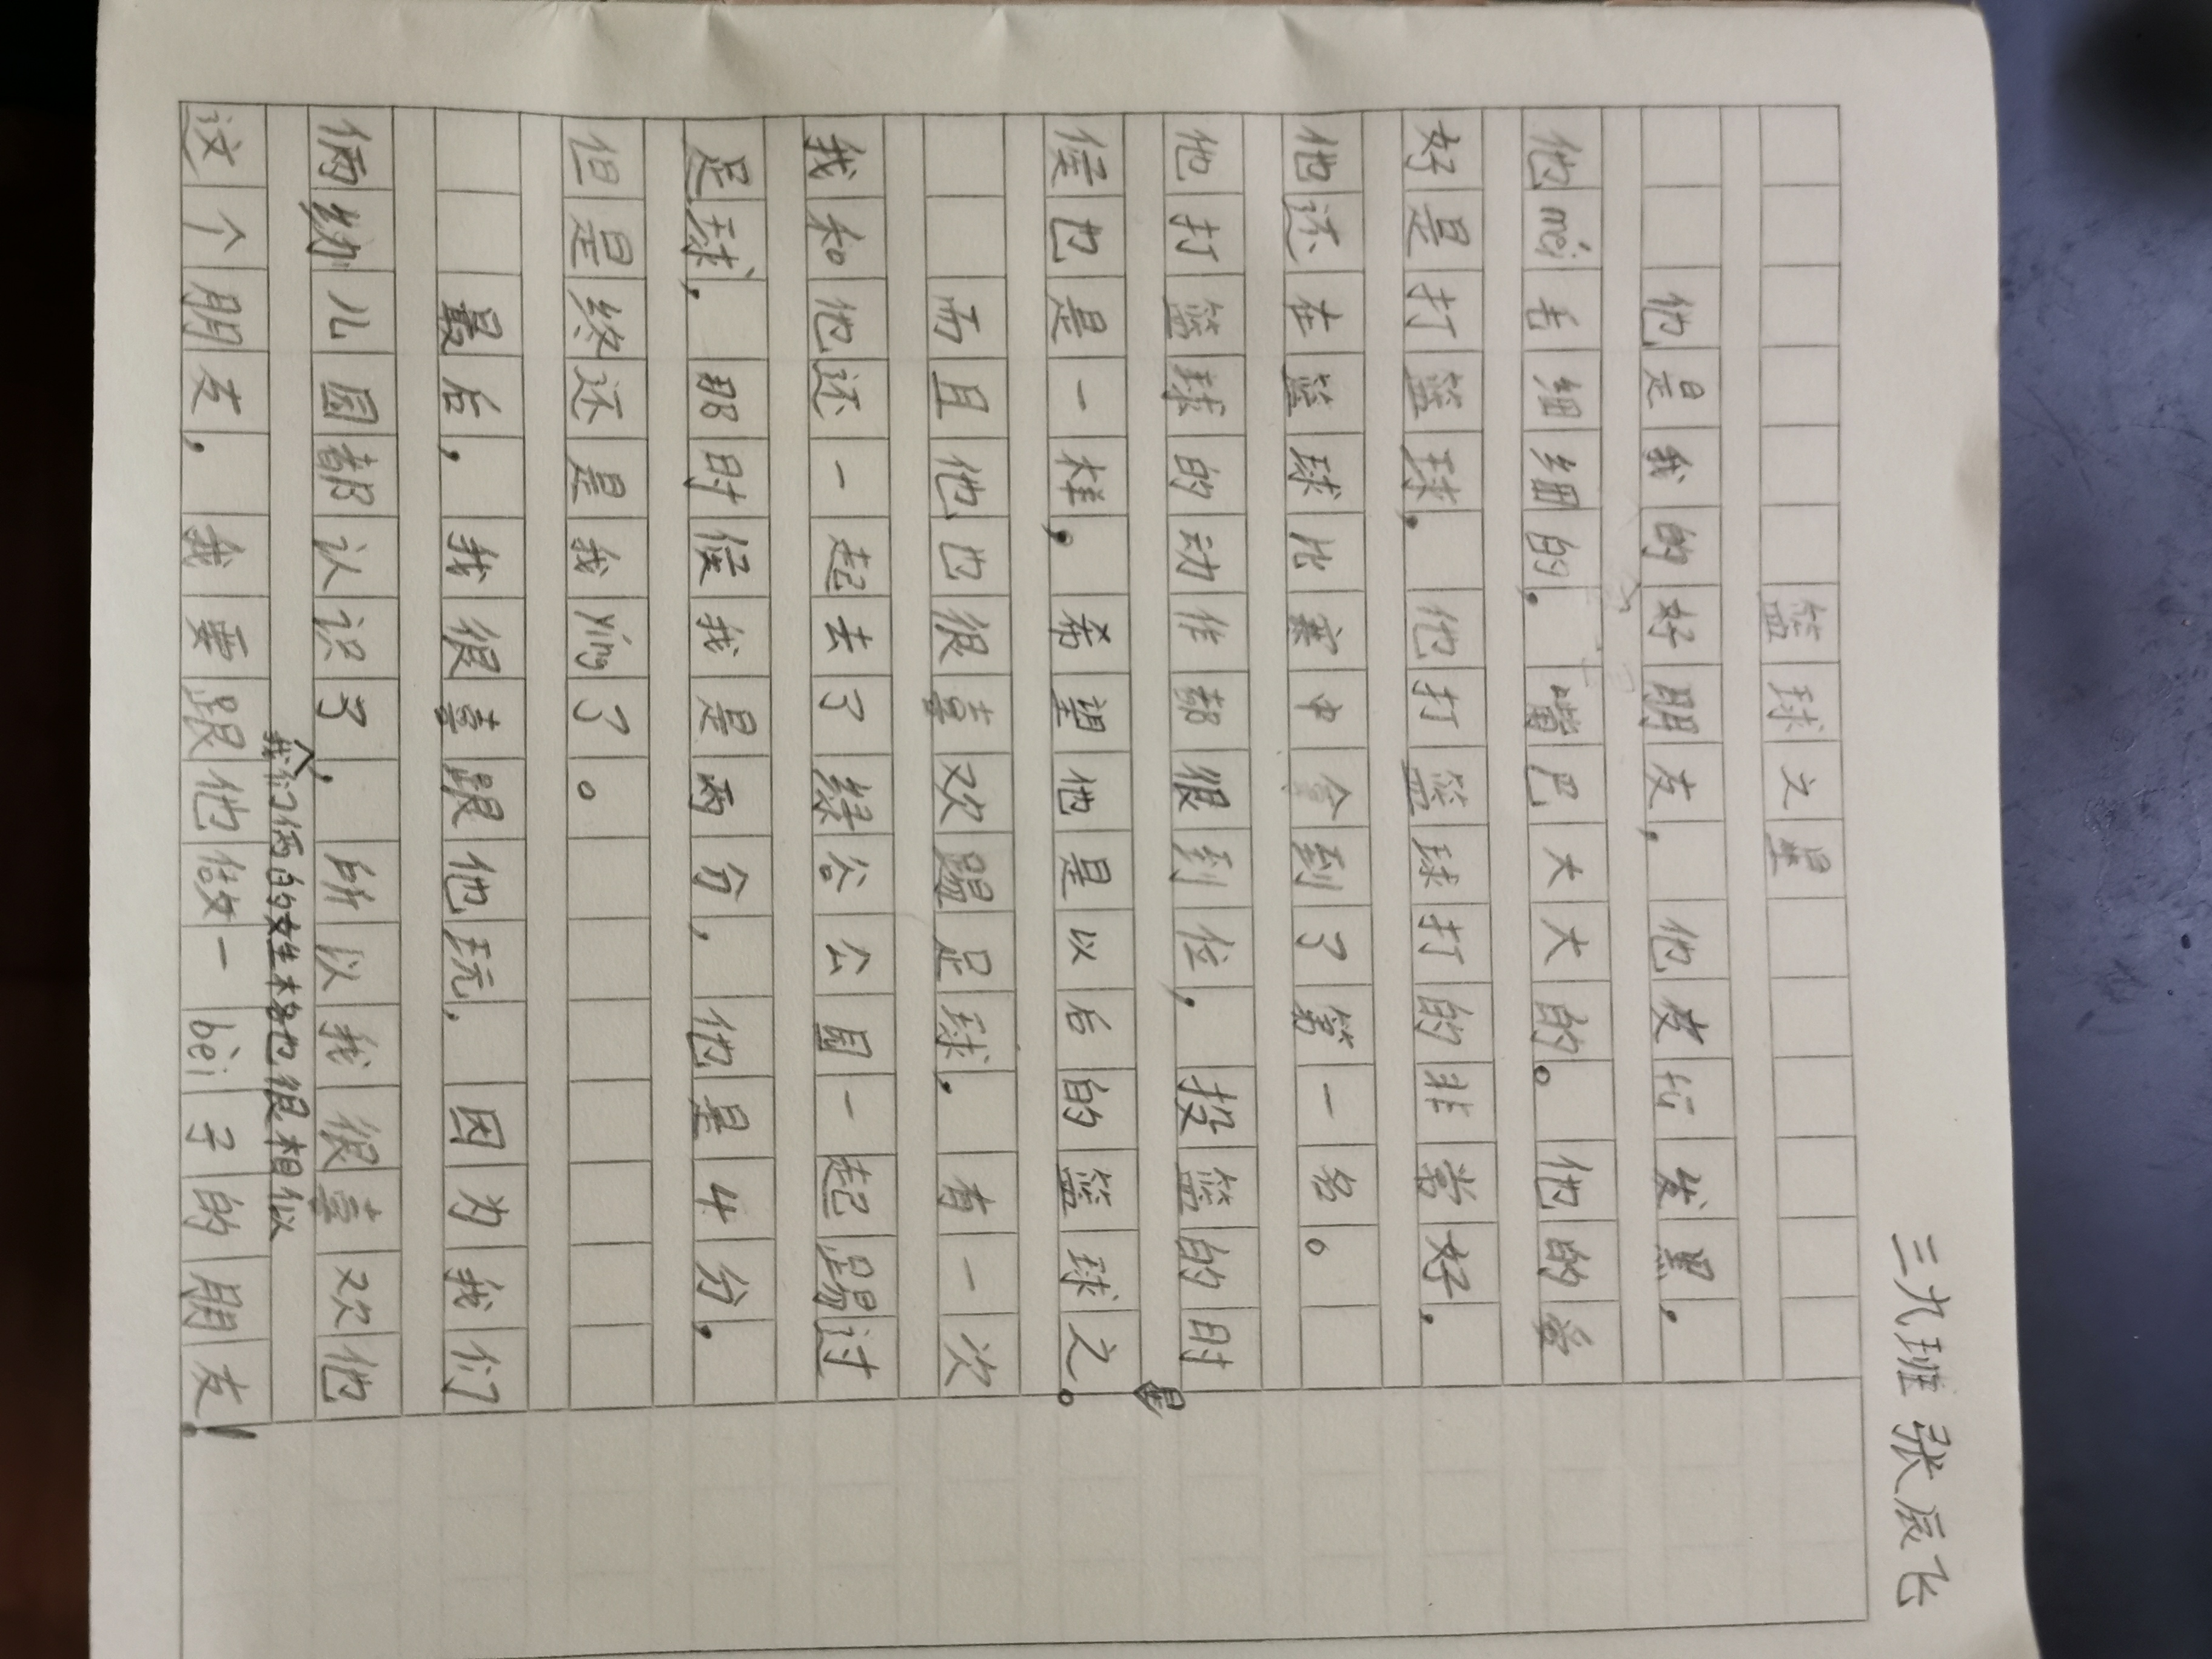 三九班 张辰飞
篮球之星
他是我的好朋友，他皮忻发黑，
他méi毛细细的，嘴巴大大的。他的爱
好是打篮球，他打篮球打的非常好，
他还在篮球比赛中拿到了第一名。
他打篮球的动作都很到位，投篮的时
候也是一样，希望他是以后的篮球之星。
而且他也很喜欢踢足球，有一次
我和他还一起去了绿谷公园一起踢过
足球，那时候我是两分，他是4分，
但是终还是我yíng了。
最后，我很喜跟他玩，因为我们
俩幼儿园都认识了，我们俩的女生格也很相似所以我很喜欢他
这个朋友，我要跟他做一bèi子的朋友！